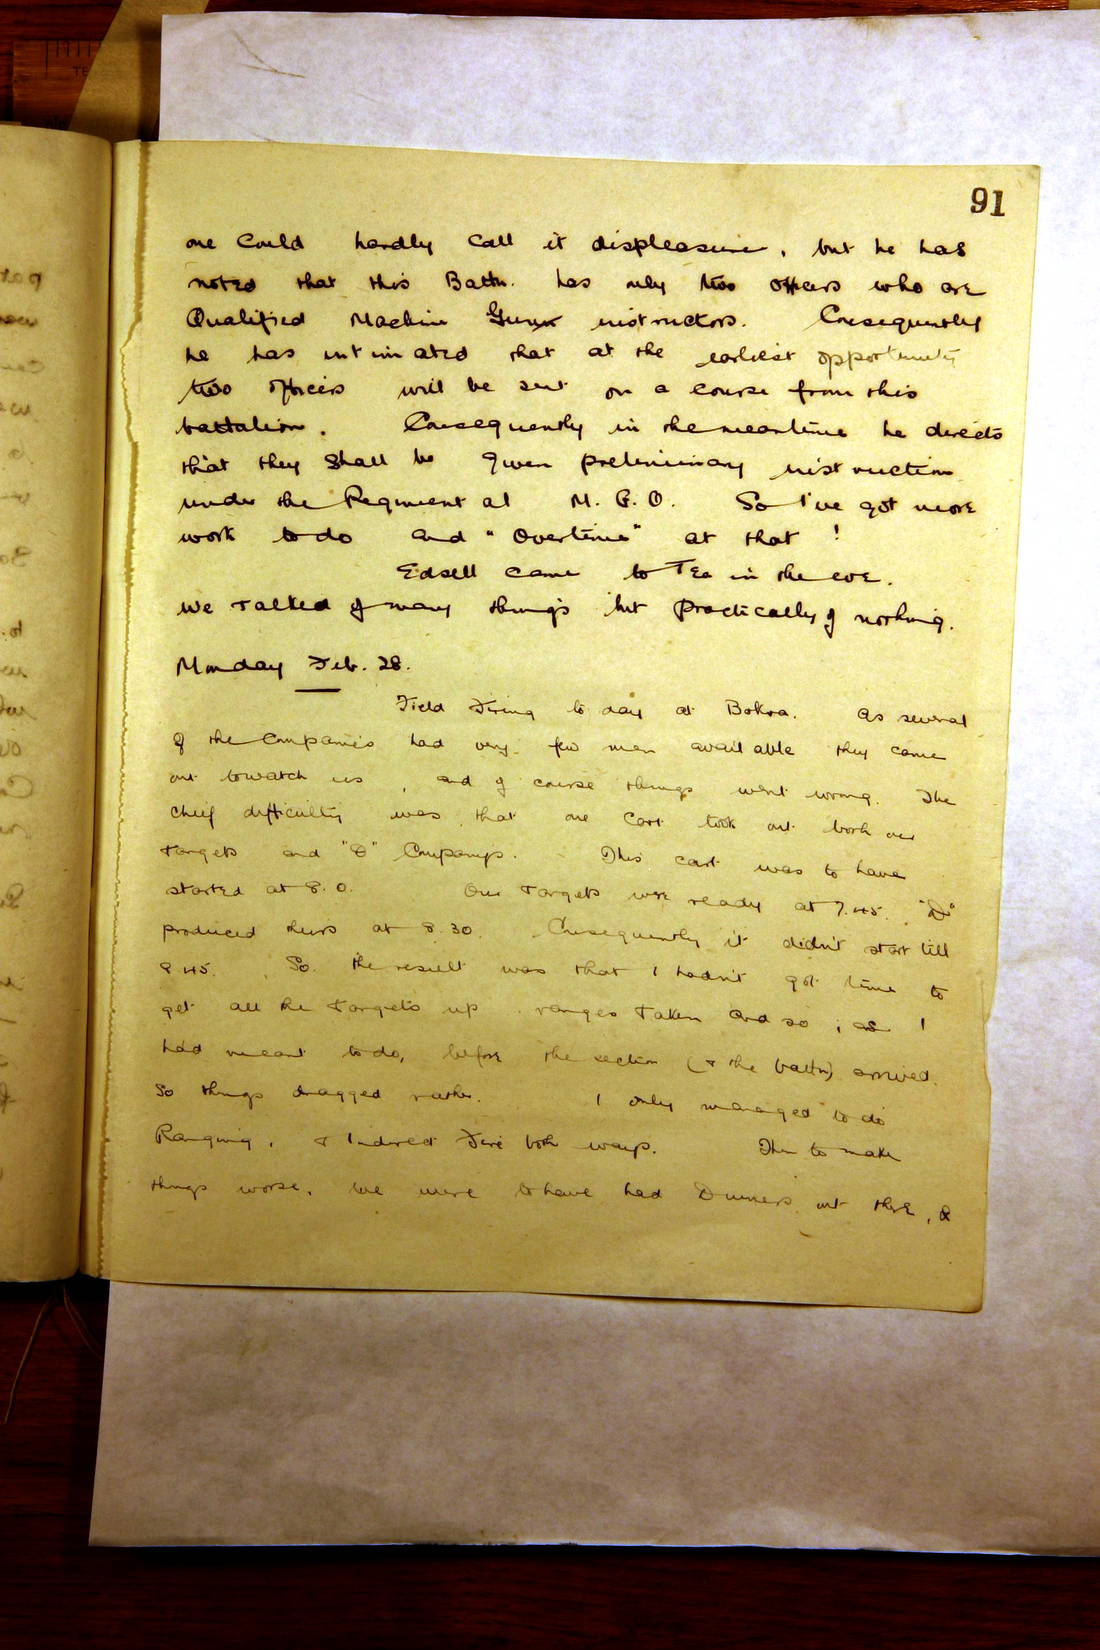 91
one could hardly call it displeasure, but he has
noted that this Battn. has only two officers who are
Qualified Machine Gun instructors. Consequently
he has intimated that at the earliest opportunity
two officers will be sent on a course from this
battalion. Consequently in the meantime he directs
that they shall be given preliminary instruction
under the Regimental M. G. O. So I've got more
work to do and "Overtime" at that!
Edsell came to Tea in the eve.
We talked of many things but practically of nothing.
Monday Feb. 28.
Field Firing to day at Bokra. As several
of the Companies had very few men available they came
out to watch us, and of course things went wrong. The
chief difficulty was that one cart took out both our
targets and "D" Companys. This cart was to have
started at 8.0. Our targets were ready at 7.45. "D"
produced theirs at 8.30. Consequently it didn't start till
8.45. So the result was that I hadn't got time to
get all the targets up, ranges taken and so, as I
had meant to do, before the section (& the battn) arrived.
So things dragged rather. I only managed to do
Ranging, & Indirect Fire both ways. Then to make
things worse, we were to have had Dinners out there, &